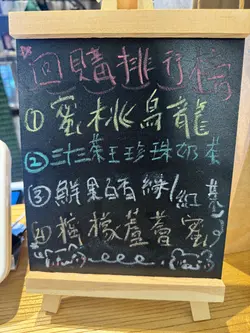 回購排行榜
①蜜桃烏龍
②三十三茶王珍珠奶茶
③鮮果百香綠/紅茶
④檸檬蘆薈蜜